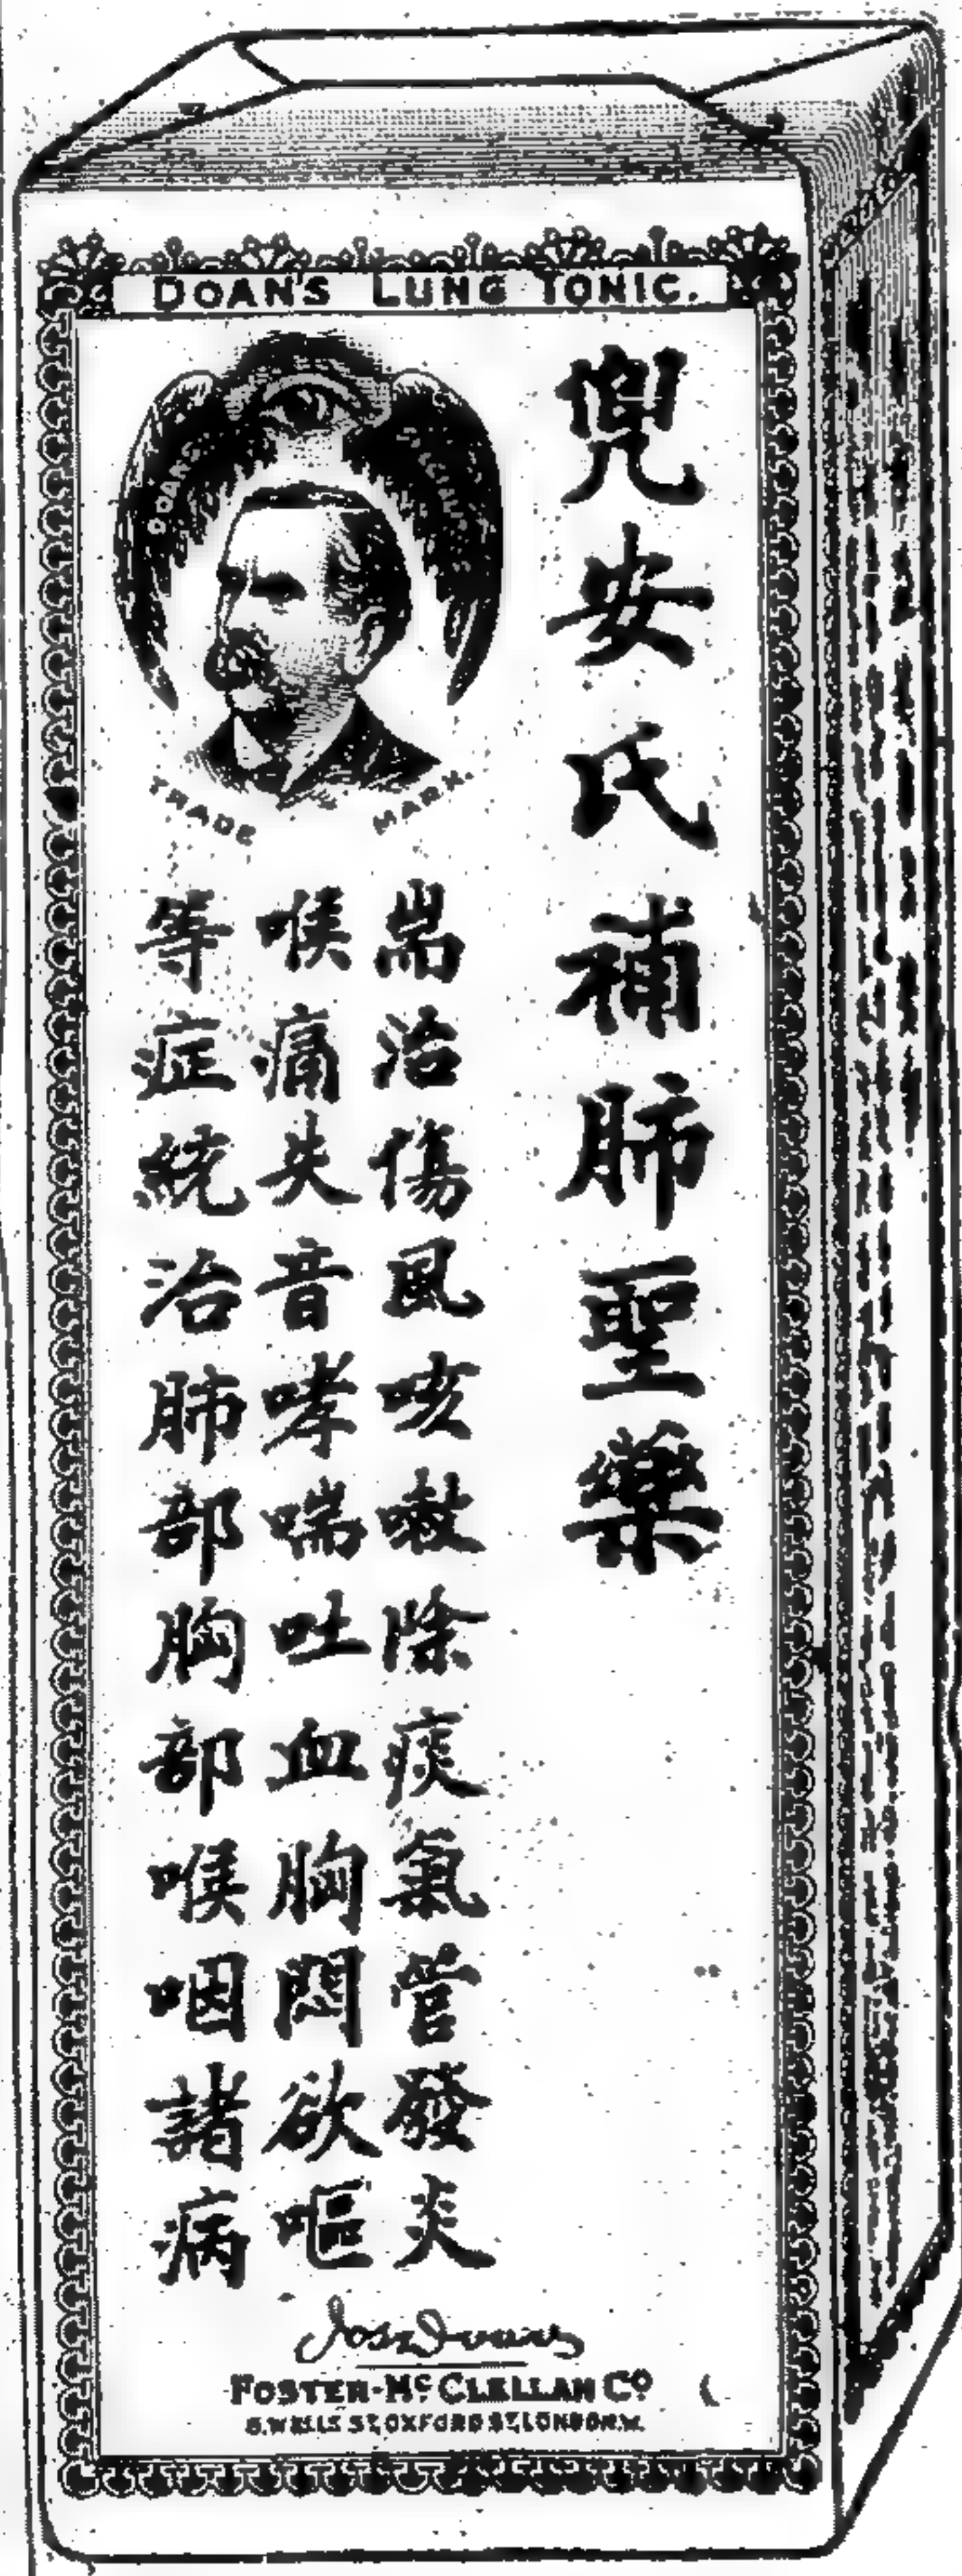 DOAN'S LUNG TONIC.
兜安氏補肺聖藥
DOAN'S
TRADE MARK.
耑治傷風咳嗽除痰氣管發炎
喉痛失音哮喘吐血胸悶欲嘔
等症統治肺部胸部喉咽諸病
FOSTER-McCLELLAN Co
8. WELLS ST, OXFORD ST, LONDON. W.